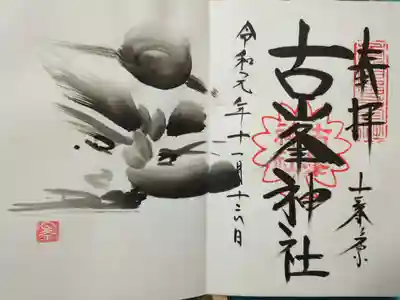 奉拝
古峯原
古峯神社
令和元年十一月十六日